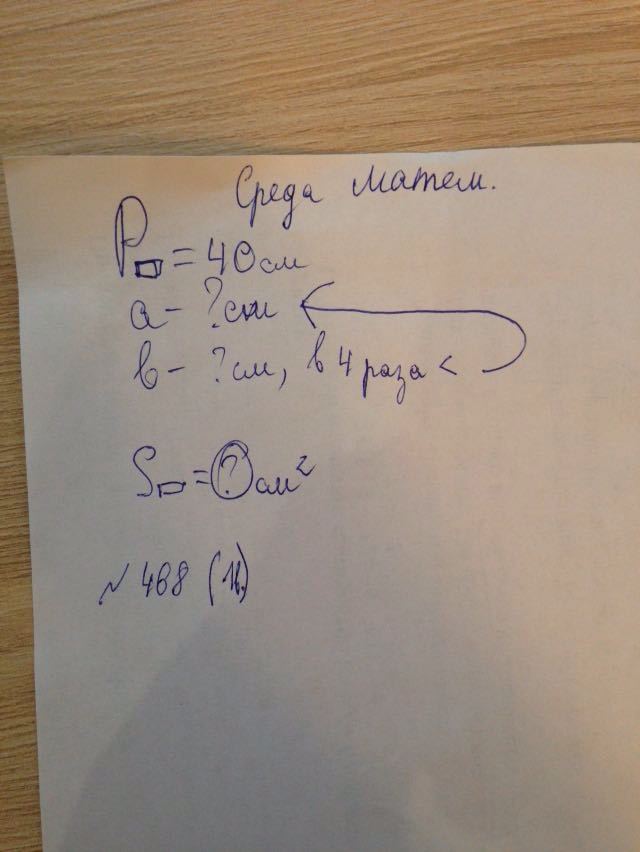 Среда матем.
P▭ = 40 см
a - ? см
b - ? см, в 4 раза <
S▭ = ? см²
№ 468 (1б)